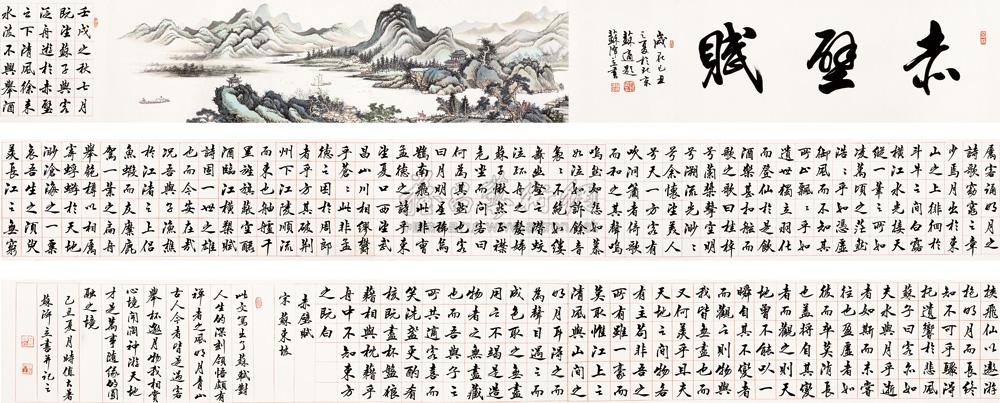 赤壁賦
歲在己丑
之夏於北京
蘇適題
蘇澤立書
壬戌之秋七月
既望蘇子與客
泛舟遊於赤壁
之下清風徐來
水波不興舉酒
屬客誦明月之
詩歌窈窕之章
少焉月出於東
山之上徘徊於
斗牛之間白露
橫江水光接天
縱一葦之所如
凌萬頃之茫然
浩浩乎如憑虛
御風而不知其
所止飄飄乎如
遺世獨立羽化
而登仙於是飲
酒樂甚扣舷而
歌之歌曰桂棹
兮蘭槳擊空明
兮泝流光渺渺
兮余懷望美人
兮天一方客有
吹洞簫者倚歌
而和之其聲嗚
嗚然如怨如慕
如泣如訴餘音
嫋嫋不絕如縷
舞幽壑之潛蛟
泣孤舟之嫠婦
蘇子愀然正襟
危坐而問客曰
何為其然也客
曰月明星稀烏
鵲南飛此非曹
孟德之詩乎西
望夏口東望武
昌山川相繆鬱
乎蒼蒼此非孟
德之困於周郎
者乎方其破荊
州下江陵順流
而東也舳艫千
里旌旗蔽空釃
酒臨江橫槊賦
詩固一世之雄
也而今安在哉
況吾與子漁樵
於江渚之上侶
魚蝦而友麋鹿
駕一葉之扁舟
舉匏樽以相屬
寄蜉蝣於天地
渺滄海之一粟
哀吾生之須臾
羨長江之無窮
挾飛仙以遨遊
抱明月而長終
知不可乎驟得
托遺響於悲風
蘇子曰客亦知
夫水與月乎逝
者如斯而未嘗
往也盈虛者如
彼而卒莫消長
也蓋將自其變
者而觀之則天
地曾不能以一
瞬自其不變者
而觀之則物與
我皆無盡也而
又何羨乎且夫
天地之間物各
有主苟非吾之
所有雖一毫而
莫取惟江上之
清風與山間之
明月耳得之而
為聲目遇之而
成色取之無禁
用之不竭是造
物者之無盡藏
也而吾與子之
所共適客喜而
笑洗盞更酌肴
核既盡杯盤狼
藉相與枕藉乎
舟中不知東方
之既白
赤壁賦
宋蘇東坡
此文寫了蘇軾對
人生的深刻領悟頗有
禪者之風明月青山
古人今者皆是過客
舉杯邀月物我相賞
心境開闊神游天地
才是萬事隨緣的圓
融之境
己丑夏月時值大暑
蘇澤立書并記之